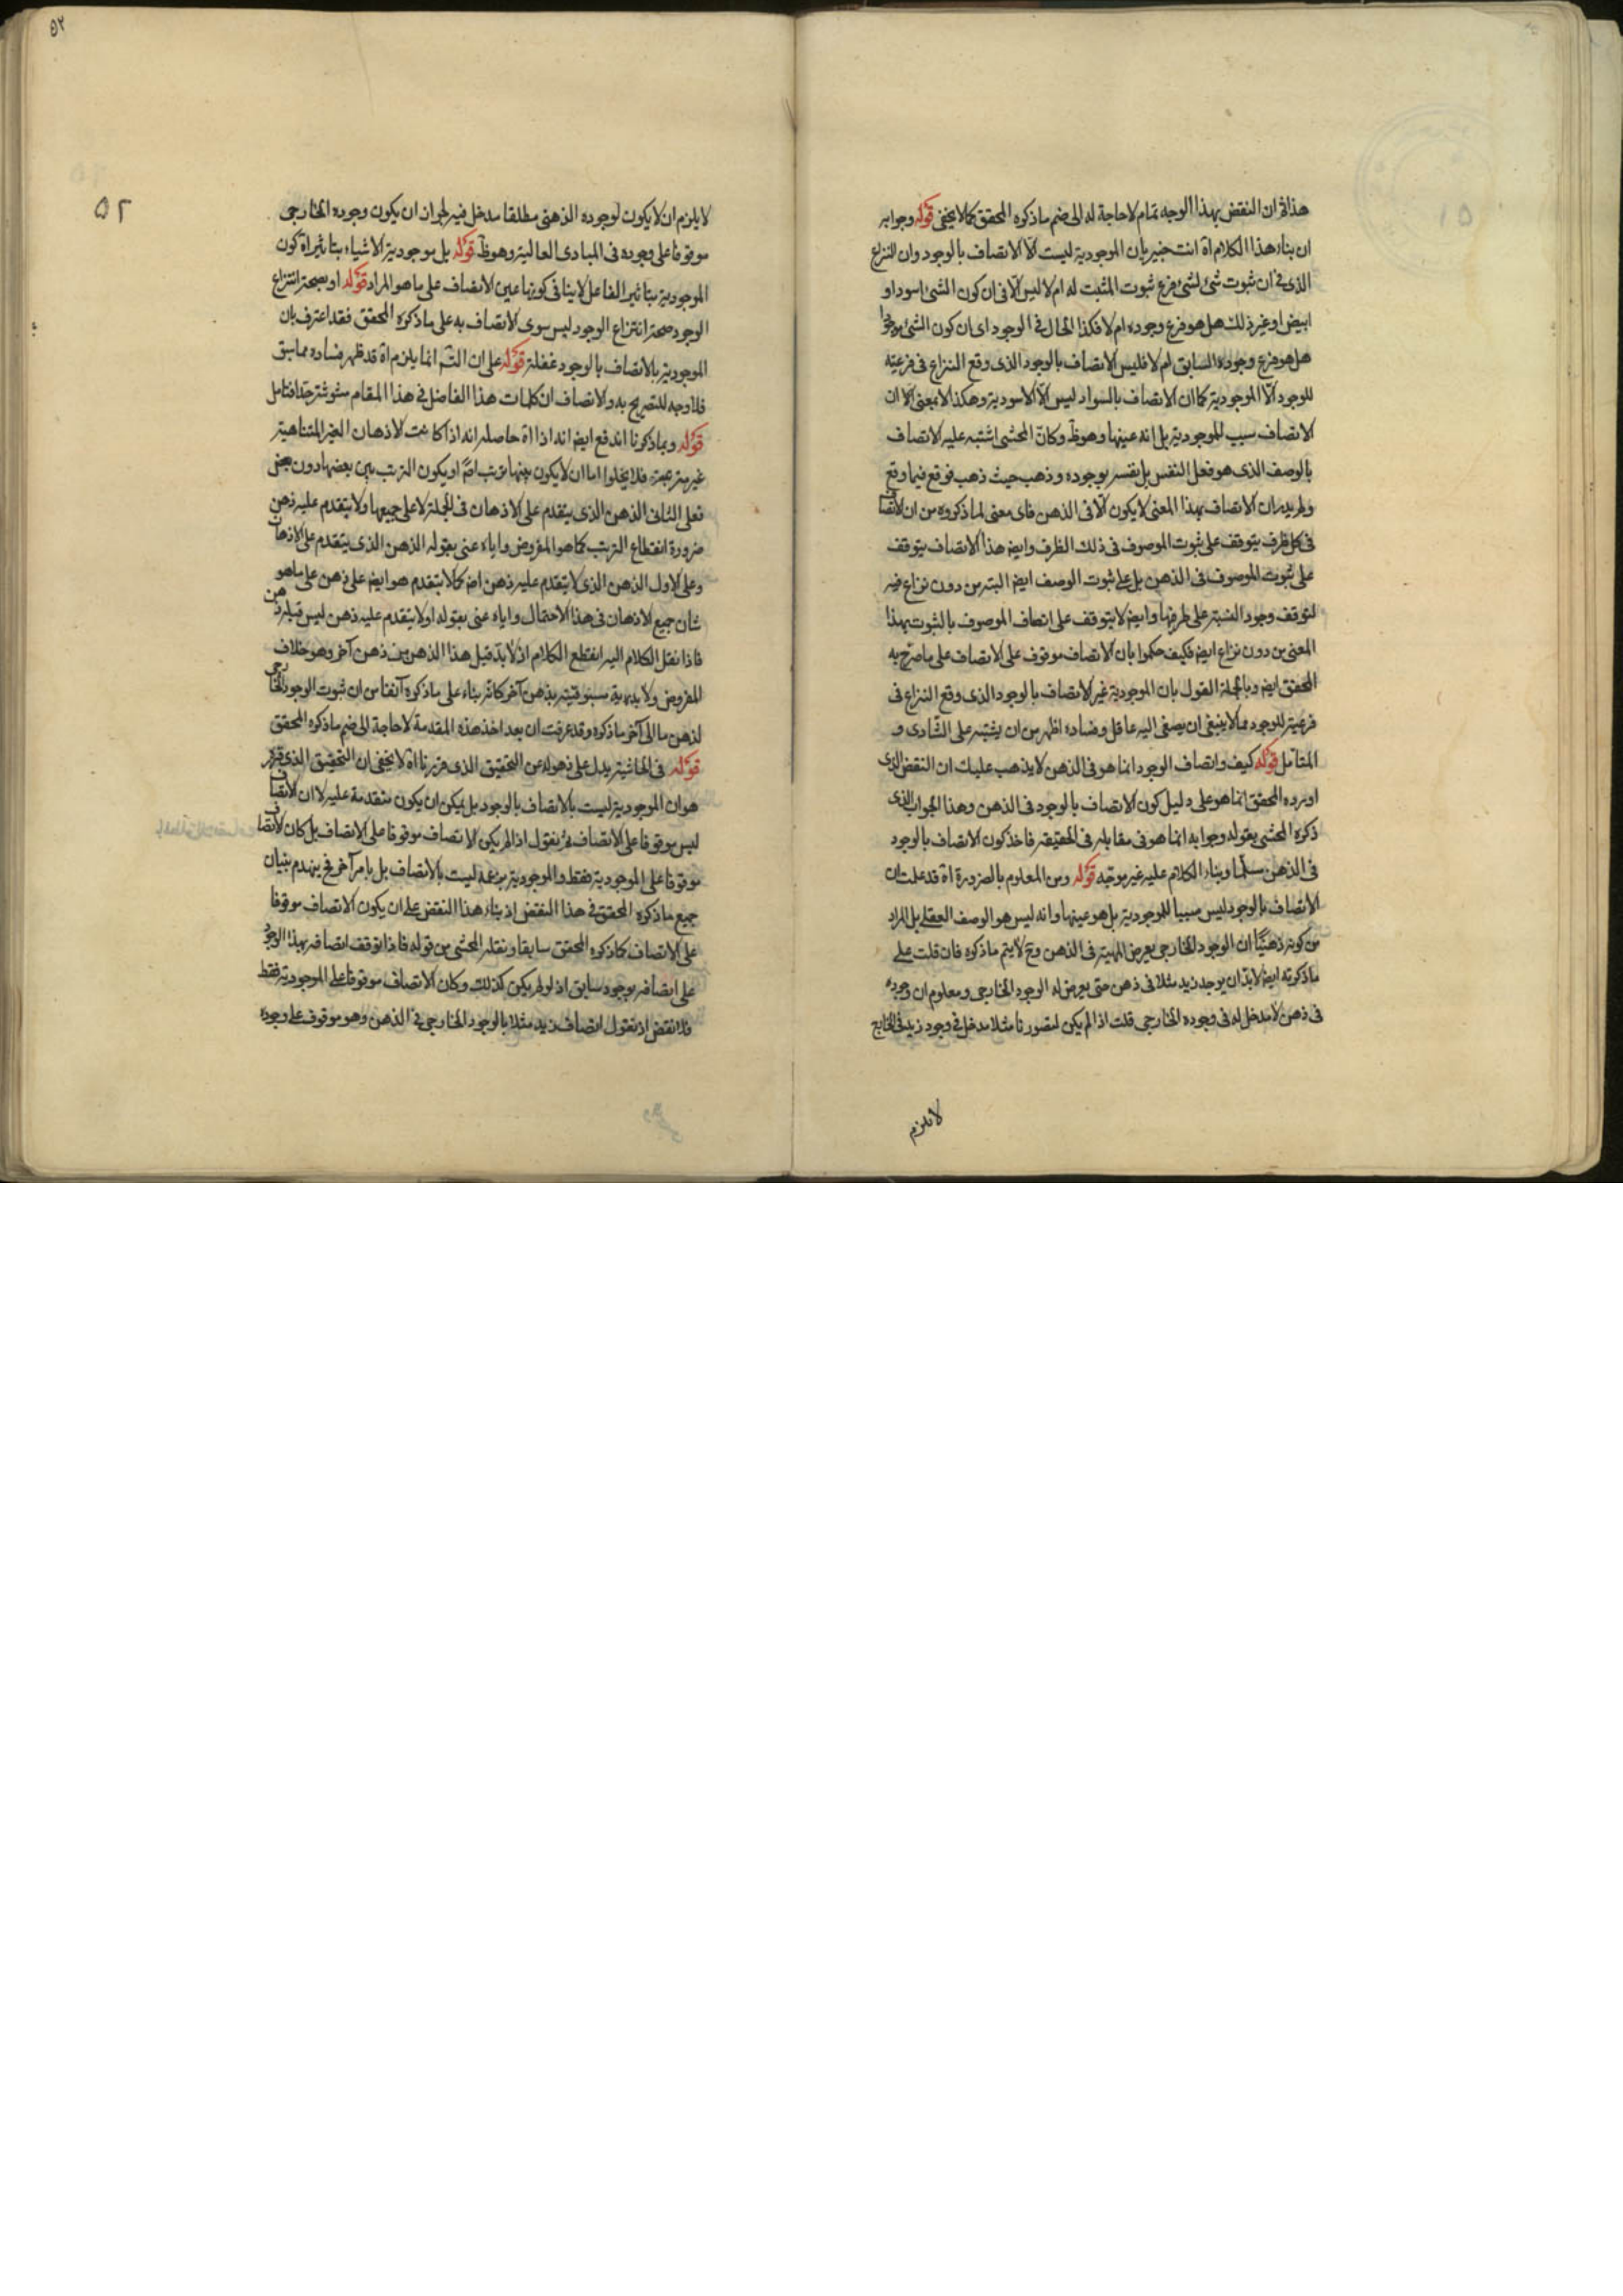 هذا ثم ان النقض بهذا الوجه تمام لا حاجة له الى ضم ما ذكره المحقق كما لا يخفى قوله وجوابه
ان بناء هذا الكلام اة انت خبير بان الموجودية ليست الا الاتصاف بالوجود وان النزاع
الذى فى ان ثبوت شئ لشئ فرع ثبوت المثبت له ام لا ليس الا فى ان كون الشئ اسود او
ابيض او غير ذلك هل هو فرع وجوده ام لا فكذا الحال فى الوجود اى ان كون الشئ موجودا
هل هو فرع وجوده السابق ام لا فليس الاتصاف بالوجود الذى وقع النزاع فى فرعيته
للوجود الا الموجودية كما ان الاتصاف بالسواد ليس الا الاسودية وهكذا لا بمعنى الا ان
الاتصاف سبب للموجودية بل انه عينها وهو ظ وكان المحشى اشتبه عليه الاتصاف
بالوصف الذى هو فعل النفس بل يفسر بوجوده وذهب حيث ذهب فوقع فيما وقع
ولم يدر ان الاتصاف بهذا المعنى لا يكون الا فى الذهن فاى معنى لما ذكروه من ان الاتصاف
فى كل ظرف يتوقف على ثبوت الموصوف فى ذلك الظرف وايض هذا الاتصاف يتوقف
على ثبوت الموصوف فى الذهن بل على ثبوت الوصف ايض البتة من دون نزاع فيه
لتوقف وجود النسبة على طرفيها وايض لا يتوقف على اتصاف الموصوف بالثبوت بهذا
المعنى من دون نزاع ايض فكيف حكموا بان الاتصاف موقوف على الاتصاف على ما صرح به
المحقق ايض وبالجملة القول بان الموجودية غير الاتصاف بالوجود الذى وقع النزاع فى
فرعيته للوجود مما لا ينبغى ان يصغى اليه عاقل وفساده اظهر من ان يشتبه على الشادى و
المتامل قوله كيف واتصاف الوجود انما هو فى الذهن لا يذهب عليك ان النقض الذى
اورده المحقق انما هو على دليل كون الاتصاف بالوجود فى الذهن وهذا الجواب الذى
ذكره المحشى بقوله وجوابه انما هو فى مقابله فى الحقيقة فاخذ كون الاتصاف بالوجود
فى الذهن مسلما وبناء الكلام عليه غير موجه قوله ومن المعلوم بالضرورة اة قد علمت ان
الاتصاف بالوجود ليس سببا للموجودية بل هو عينها وانه ليس هو الوصف العقلى بل المراد
من كونه ذهنيا ان الوجود الخارجى يعرض المهية فى الذهن وح لا يتم ما ذكره فان قلت على
ما ذكرته ايض لا بد ان يوجد زيد مثلا فى ذهن حتى يعرض له الوجود الخارجى ومعلوم ان وجوده
فى ذهن لا مدخل له فى وجوده الخارجى قلت اذا لم يكن لتصورنا مثلا مدخل فى وجود زيد فى الخارج
لا يلزم
٥٢
٥٢
لا يلزم ان لا يكون لوجوده الذهنى مطلقا مدخل فيه لجواز ان يكون وجوده الخارجى
موقوفا على وجوده فى المبادى العالية وهو ظ قوله بل موجودية الاشياء بتاثير اة كون
الموجودية بتاثير الفاعل لا ينافى كونها عين الاتصاف على ما هو المراد قوله او بصحة انتزاع
الوجود صحة انتزاع الوجود ليس سوى الاتصاف به على ما ذكره المحقق فقد اعترف بان
الموجودية بالاتصاف بالوجود غفلة قوله على ان التم انما يلزم اة قد ظهر فساده مما سبق
فلا وجه للتصريح به والانصاف ان كلمات هذا الفاضل فى هذا المقام مشوشة جدا فتامل
قوله وبما ذكرنا اندفع ايض انه اذا اة حاصله انه اذا كانت الاذهان الغير المتناهية
غير مترتبة فلا يخلوا اما ان لا يكون بينها ترتب اصلا او يكون الترتب بين بعضها دون بعض
فعلى الثانى الذهن الذى يتقدم على الاذهان فى الجملة لا على جميعها ولا يتقدم عليه ذهن
ضرورة انقطاع الترتب كما هو المفروض واياه عنى بقوله الذهن الذى يتقدم على الاذهان
وعلى الاول الذهن الذى لا يتقدم عليه ذهن اص كما لا يتقدم هو ايض على ذهن على ما هو
شان جميع الاذهان فى هذا الاحتمال واياه عنى بقوله او لا يتقدم عليه ذهن ليس قبله ذهن
فاذا نقل الكلام اليه انقطع الكلام اذ لا بد قبل هذا الذهن من ذهن آخر وهو خلاف
المفروض ولا بديهية مسبوقيته بذهن آخر كانه بناء على ما ذكره آنفا من ان ثبوت الوجود الخارجى
لذهن ما الى آخر ما ذكره وقد عرفت ان بعد اخذ هذه المقدمة لا حاجة الى ضم ما ذكره المحقق
قوله فى الحاشية يدل على ذهوله عن التحقيق الذى قررنا اة لا يخفى ان التحقيق الذى قرره
هو ان الموجودية ليست بالاتصاف بالوجود بل يمكن ان يكون متقدمة عليه لا ان الاتصاف
ليس موقوفا على الاتصاف فنقول اذا لم يكن الاتصاف موقوفا على الاتصاف بل كان الاتصاف
موقوفا على الموجودية فقط والموجودية بزعمه ليست بالاتصاف بل بامر آخر فح ينهدم بنيان
جميع ما ذكره المحقق فى هذا النقض اذ بناء هذا النقض على ان يكون الاتصاف موقوفا
على الاتصاف كما ذكره المحقق سابقا ونقله المحشى من قوله فاذا توقف اتصافه بهذا الوجود
على اتصافه بوجود سابق اذ لو لم يكن كذلك وكان الاتصاف موقوفا على الموجودية فقط
فلا نقض اذ نقول اتصاف زيد مثلا بالوجود الخارجى فى الذهن وهو موقوف على وجوده